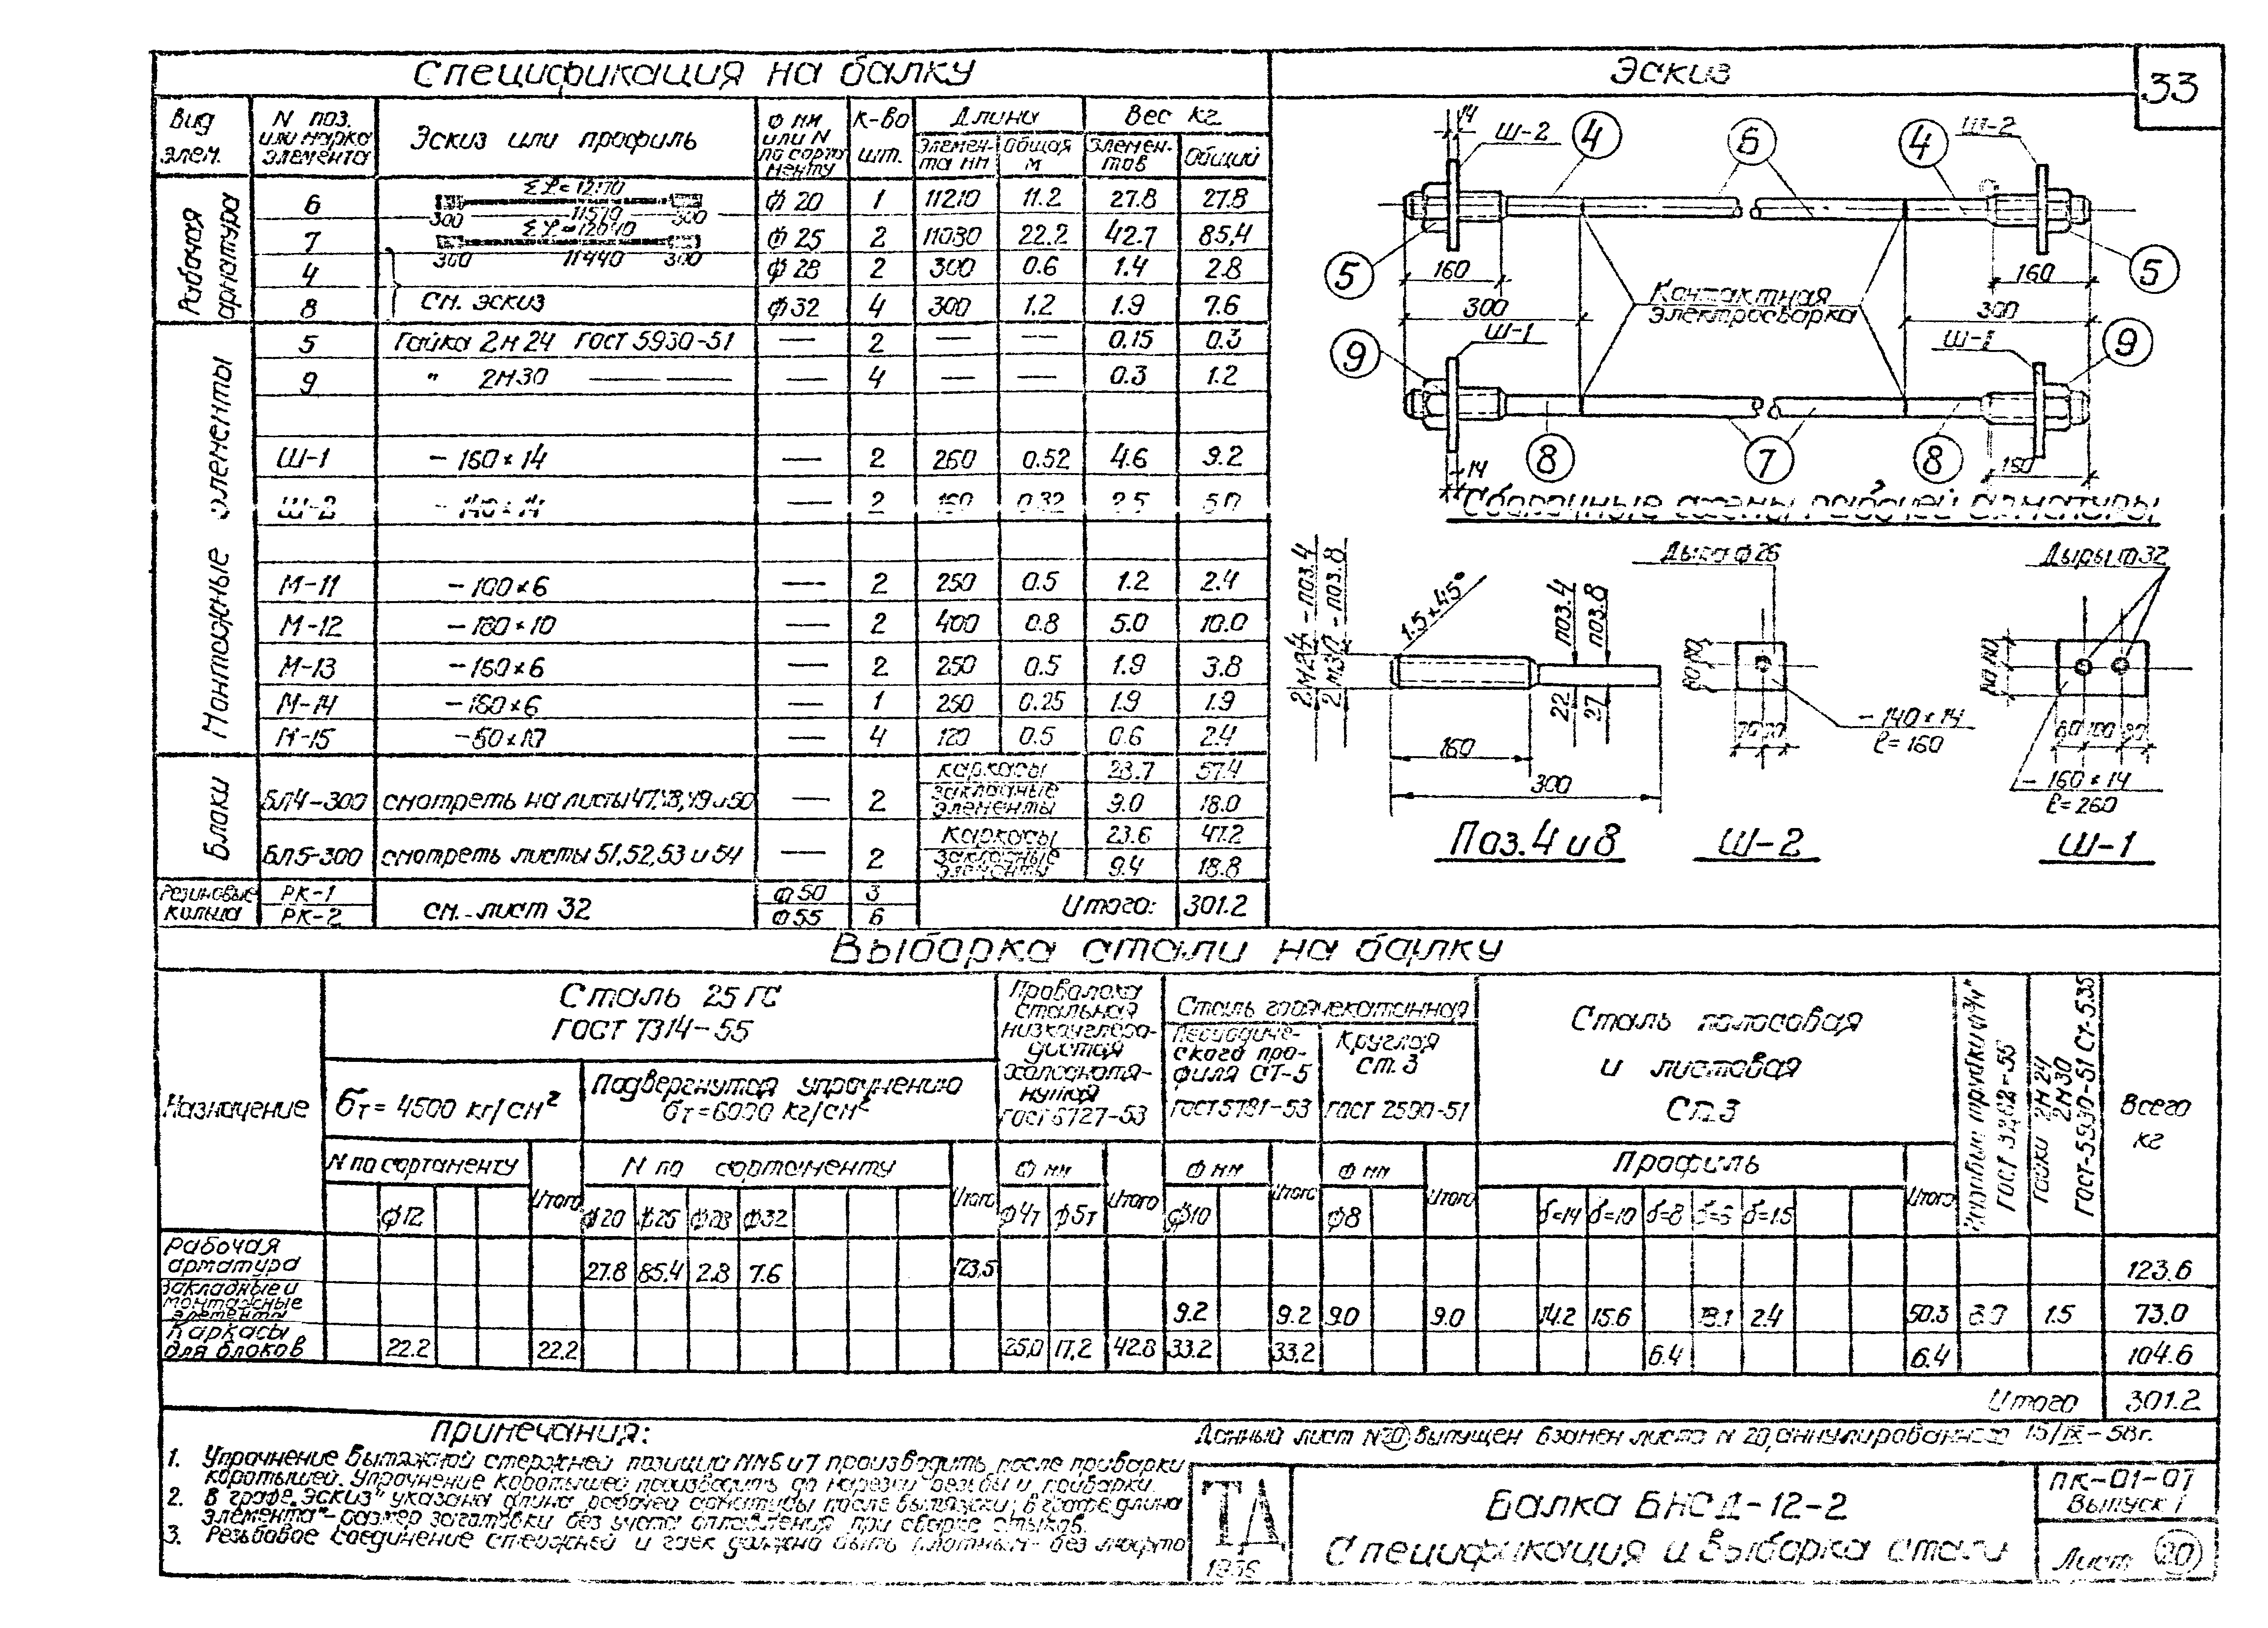 Спецификация на балку
Эскиз
33
Вид элем.
N поз. или марка элемента
Эскиз или профиль
Ф мм или N по сортаменту
К-во шт.
Длина
Вес кг
Элемента мм
Общая м
Элементов
Общий
Рабочая арматура
6 300 11570 300 ф 20 1 11210 11.2 27.8 27.8
7 300 11440 300 ф 25 2 11080 22.2 42.7 85,4
4 ф 28 2 300 0.6 1.4 2.8
8 См. эскиз ф 32 4 300 1.2 1.9 7.6
Монтажные элементы
5 Гайка 2М24 ГОСТ 5930-51 — 2 — — 0.15 0.3
9 " 2М30 — — — 4 — — 0.3 1.2
Ш-1 - 160×14 — 2 260 0.52 4.6 9.2
Ш-2 - 140×14 — 2 160 0.32 2.5 5.0
М-11 - 100×6 — 2 250 0.5 1.2 2.4
М-12 - 160×10 — 2 400 0.8 5.0 10.0
М-13 - 160×6 — 2 250 0.5 1.9 3.8
М-14 - 160×6 — 1 250 0.25 1.9 1.9
М-15 4 120 0.5 0.6 2.4
Блоки
БЛ4-300 смотреть на листы 47,48,49 и 50 — 2
каркасы 28.7 57.4
закладные элементы 9.0 18.0
БЛ5-300 смотреть листы 51,52,53 и 54 — 2
Каркасы 23.6 47.2
закладные элементы 9.4 18.8
Резиновые кольца
РК-1 Ф 50 3
РК-2 Ф 55 6
см. лист 32
Итого: 301.2
14 Ш-2 4 6 4 Ш-2
5 160 160 5
300 Контактная электросварка 300
9 Ш-1 Ш-1 9
8 7 8
14 160
Сборочные схемы рабочей арматуры
2М24 - поз.4
2М30 - поз.8
1.5×45°
поз.4
поз.8
22
27
160
300
Поз. 4 и 8
Дыра ф 26
70 70
- 140×14
ℓ=160
Ш-2
Дыры ф 32
80 100 80
- 160×14
ℓ=260
Ш-1
Выборка стали на балку
Назначение
Сталь 25ГС
ГОСТ 7314-55
σт = 4500 кг/см²
Подвергнутая упрочнению
σт = 6000 кг/см²
Проволока стальная низкоуглеродистая холоднотянутая ГОСТ 6727-53
Сталь горячекатанная
Периодического профиля СТ-5
ГОСТ 5781-53
Круглая ст.3
ГОСТ 2590-51
Сталь полосовая
и листовая
Ст.3
Газовые трубки ф 3/4"
ГОСТ 3262-55
Гайки 2М24 2М30
Всего кг
N по сортаменту
Итого
N по сортаменту
Итого
Ф мм
Итого
Ф мм
Итого
Ф мм
Итого
Профиль
Итого
ф12 ф20 ф25 ф28 ф32 ф4т ф5т ф10 ф8 δ=14 δ=10 δ=8 δ=6 δ=1.5
Рабочая арматура 27.8 85.4 2.8 7.6 123.6
Закладные и монтажные элементы 9.2 9.2 9.0 9.0 14.2 15.6 18.1 2.4 50.3 1.5 73.0
Каркасы для блоков 22.2 22.2 17.2 42.8 33.2 33.2 6.4 6.4 104.6
Итого 301.2
Примечания:
1. Упрочнение вытяжкой стержней позиции NN6 и 7 производить после приварки
коротышей. Упрочнение коротышей производить до нарезки резьбы и приварки.
2. В графе „Эскиз" указана длина рабочей арматуры после вытяжки; в графе „длина
элемента"- размер заготовки без учета оплавления при сварке стыков.
3. Резьбовое соединение стержней и гаек должно быть плотным - без люфта
Данный лист N20 выпущен взамен листа N 20, аннулированного 15/IX - 58г.
ТД
1956
Балка БНСД-12-2
Спецификация и выборка стали
ПК-01-07
Выпуск 1
Лист 20